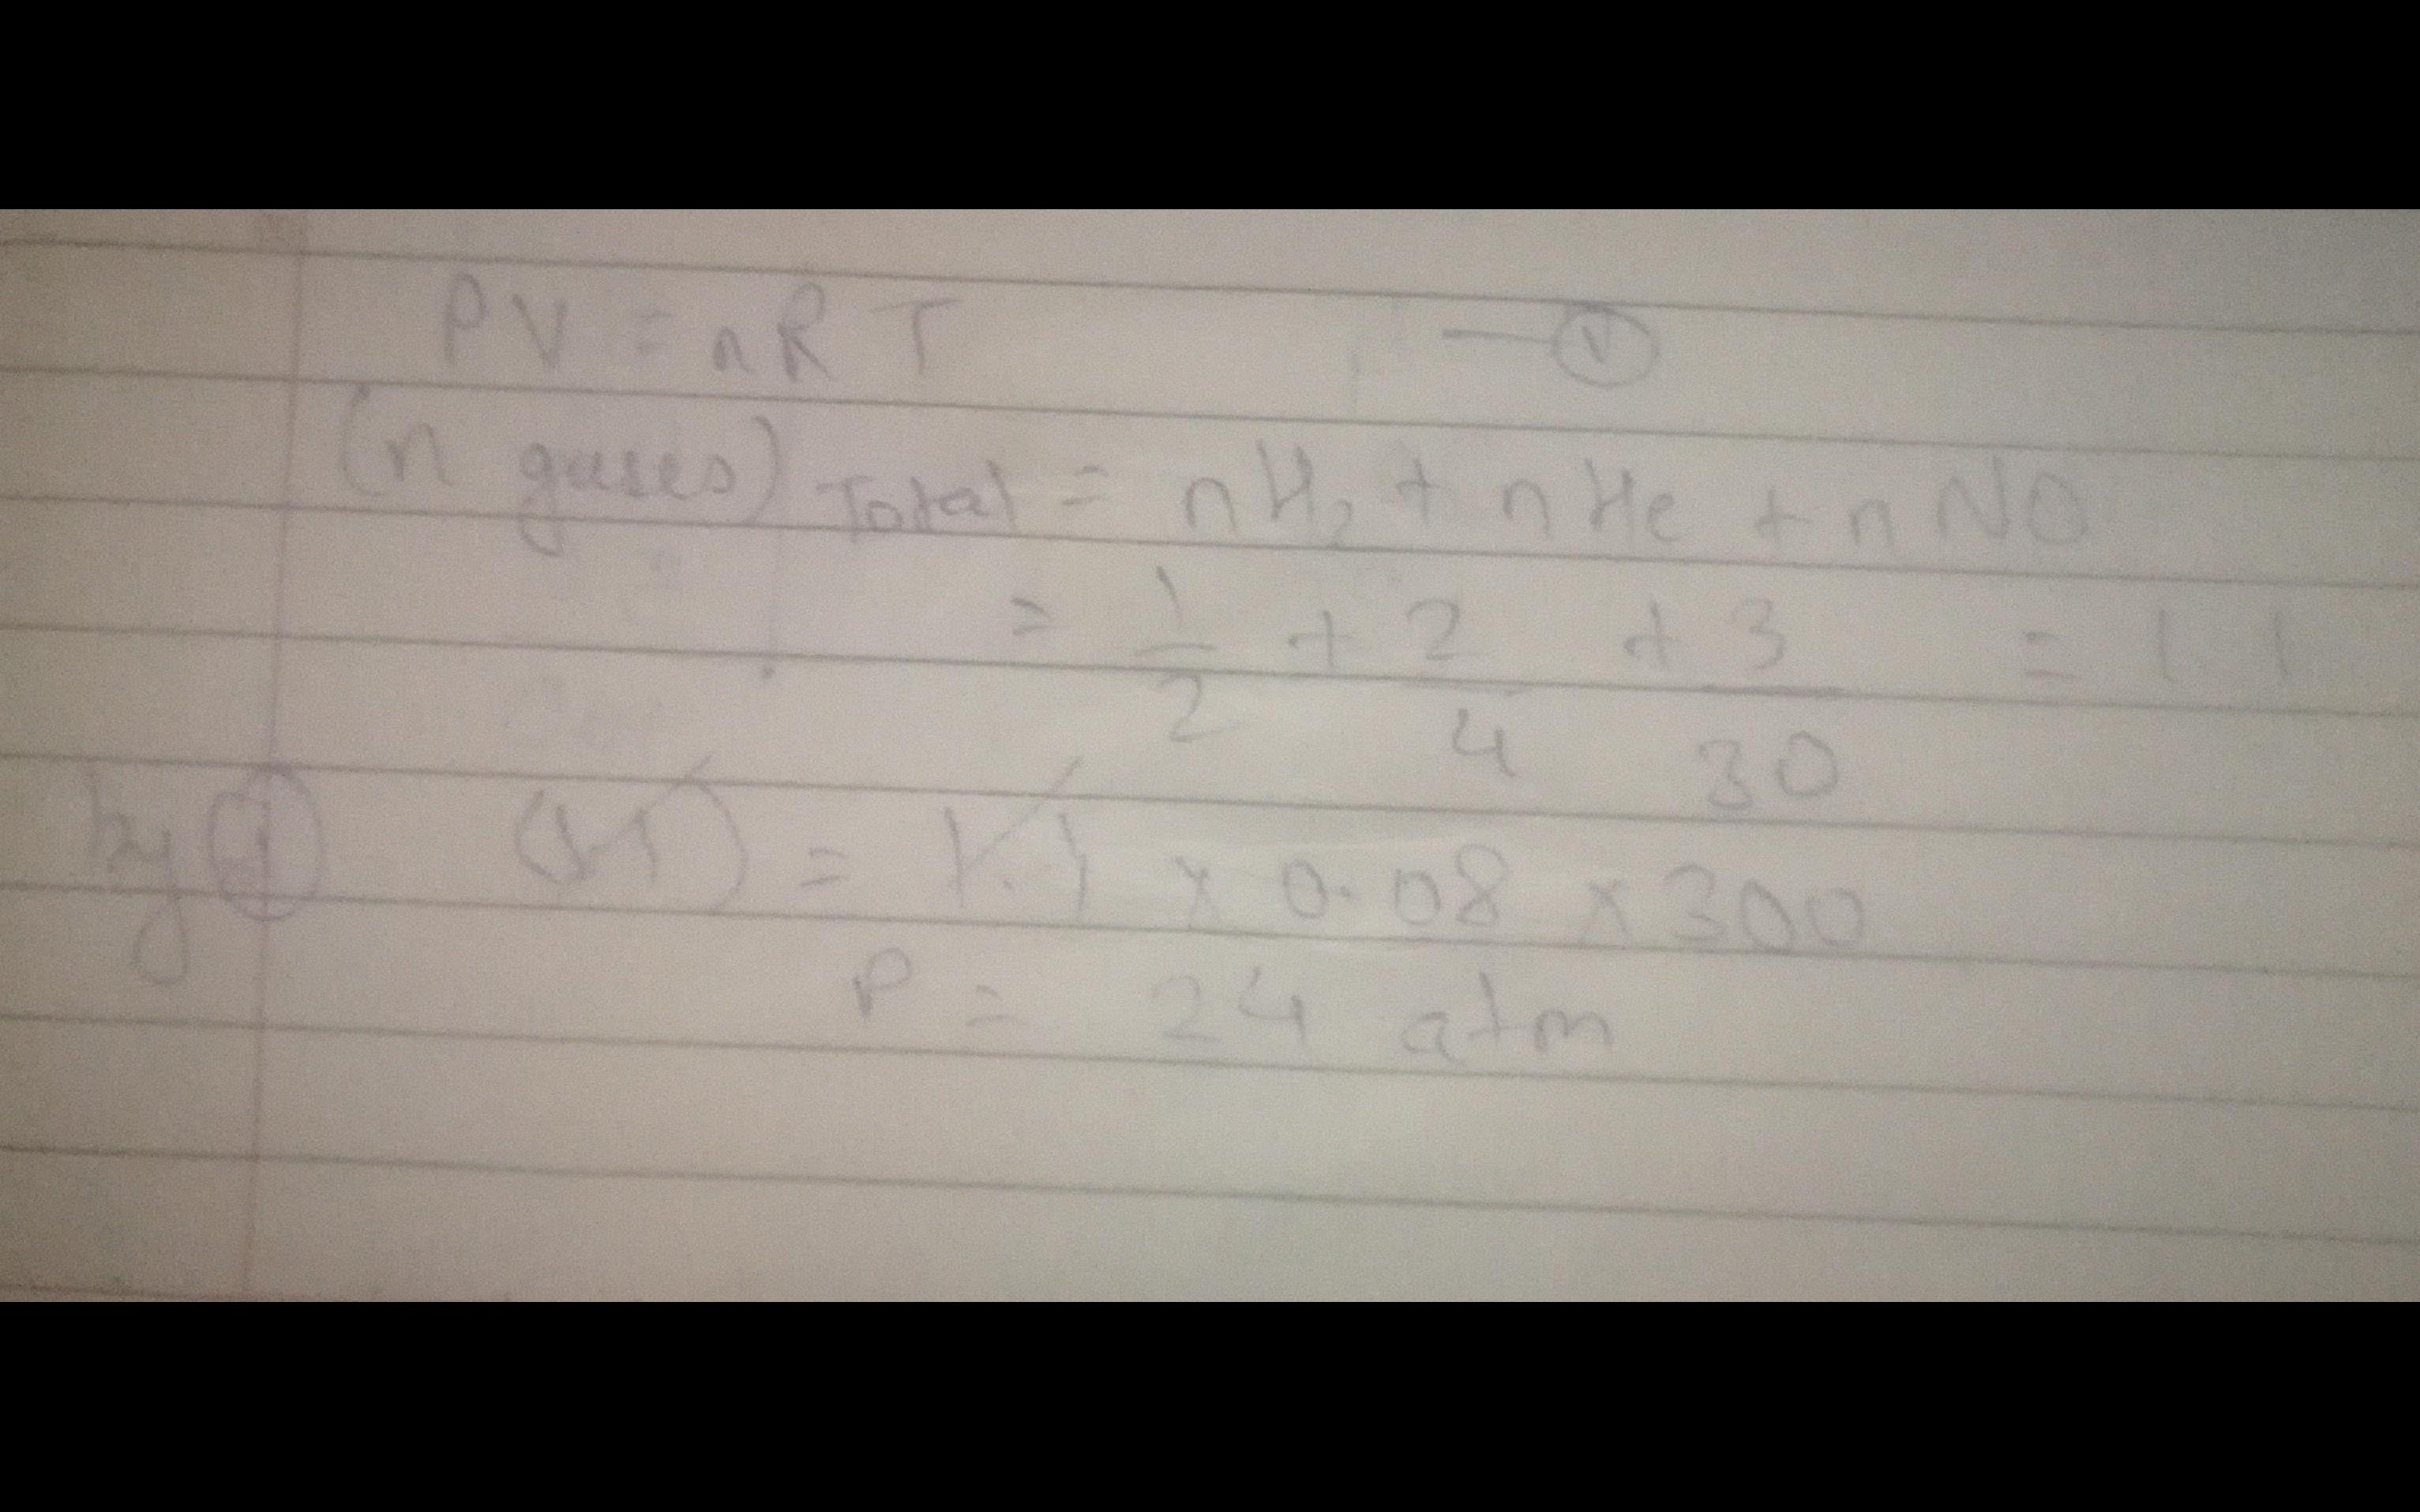 PV = nRT —①
(n gases) Total = nH₂ + nHe + nNO
= 1/2 + 2/4 + 3/30 = 1.1
by ① = 1.1 x 0.08 x 300
P = 24 atm